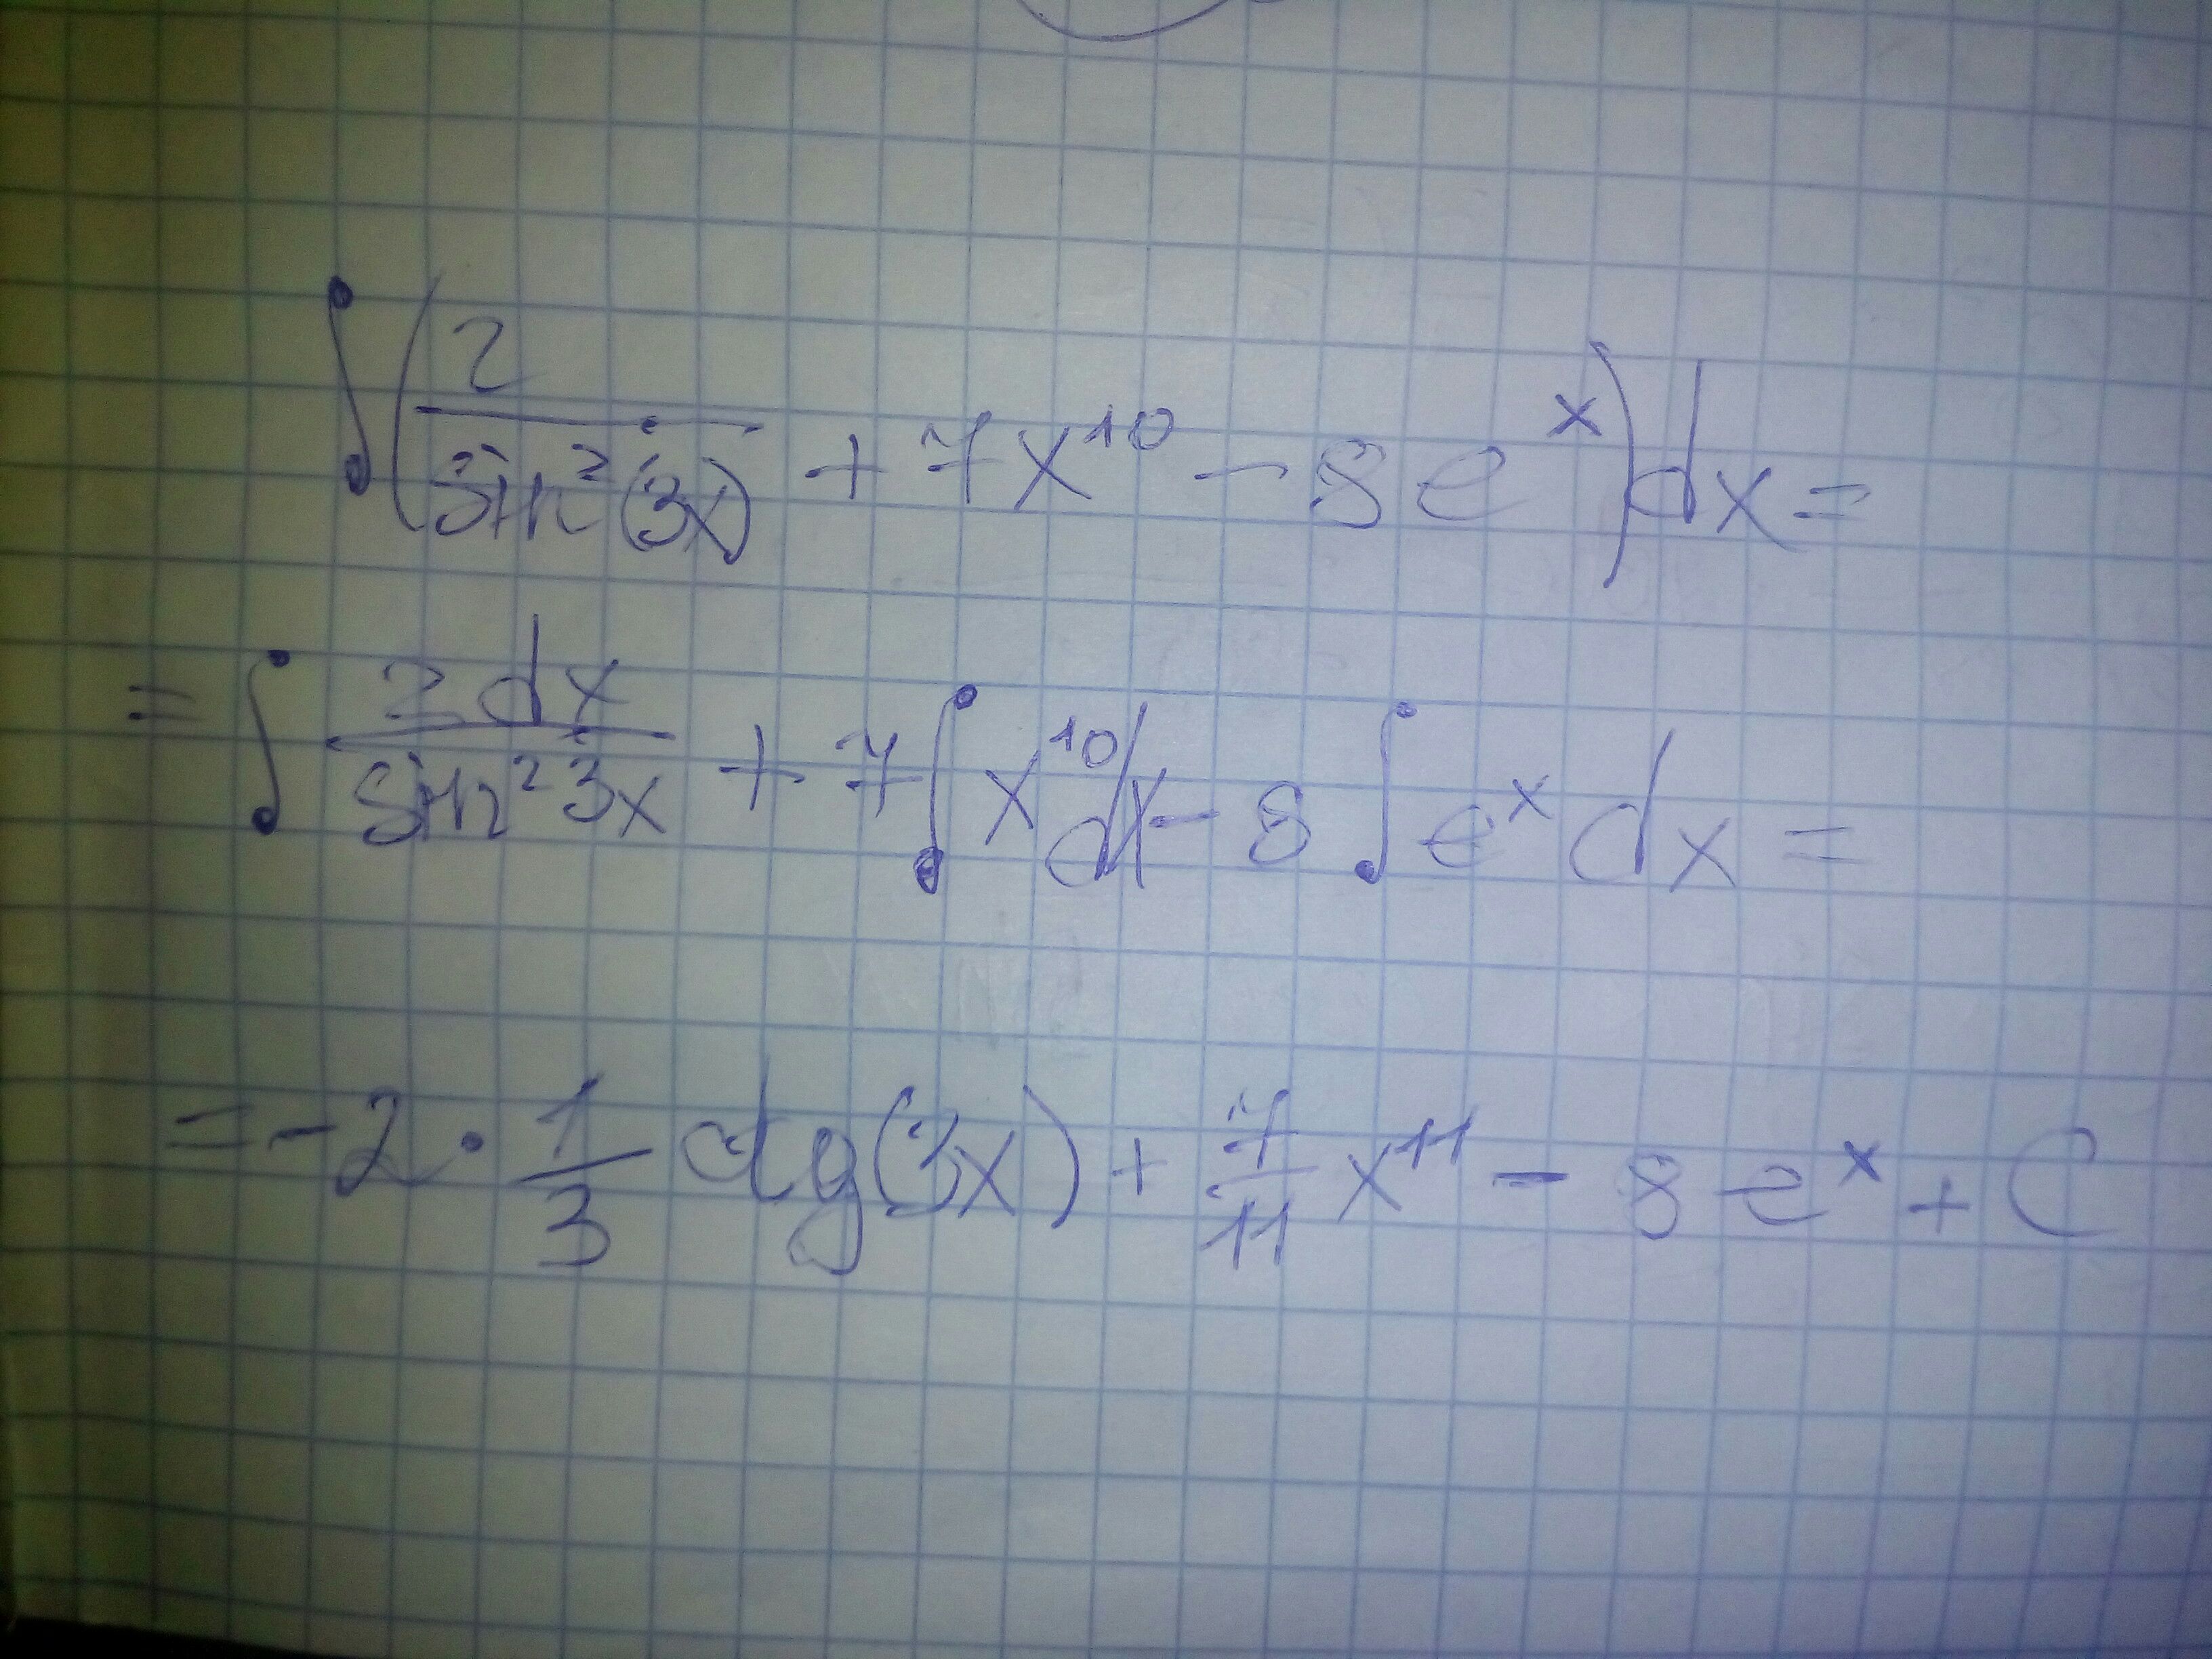 ∫(2/sin²(3x) + 7x¹⁰ - 8eˣ)dx =
= ∫ 2dx/sin²3x + 7∫x¹⁰dx - 8∫eˣdx =
= -2·1/3 ctg(3x) + 7/11 x¹¹ - 8eˣ + C